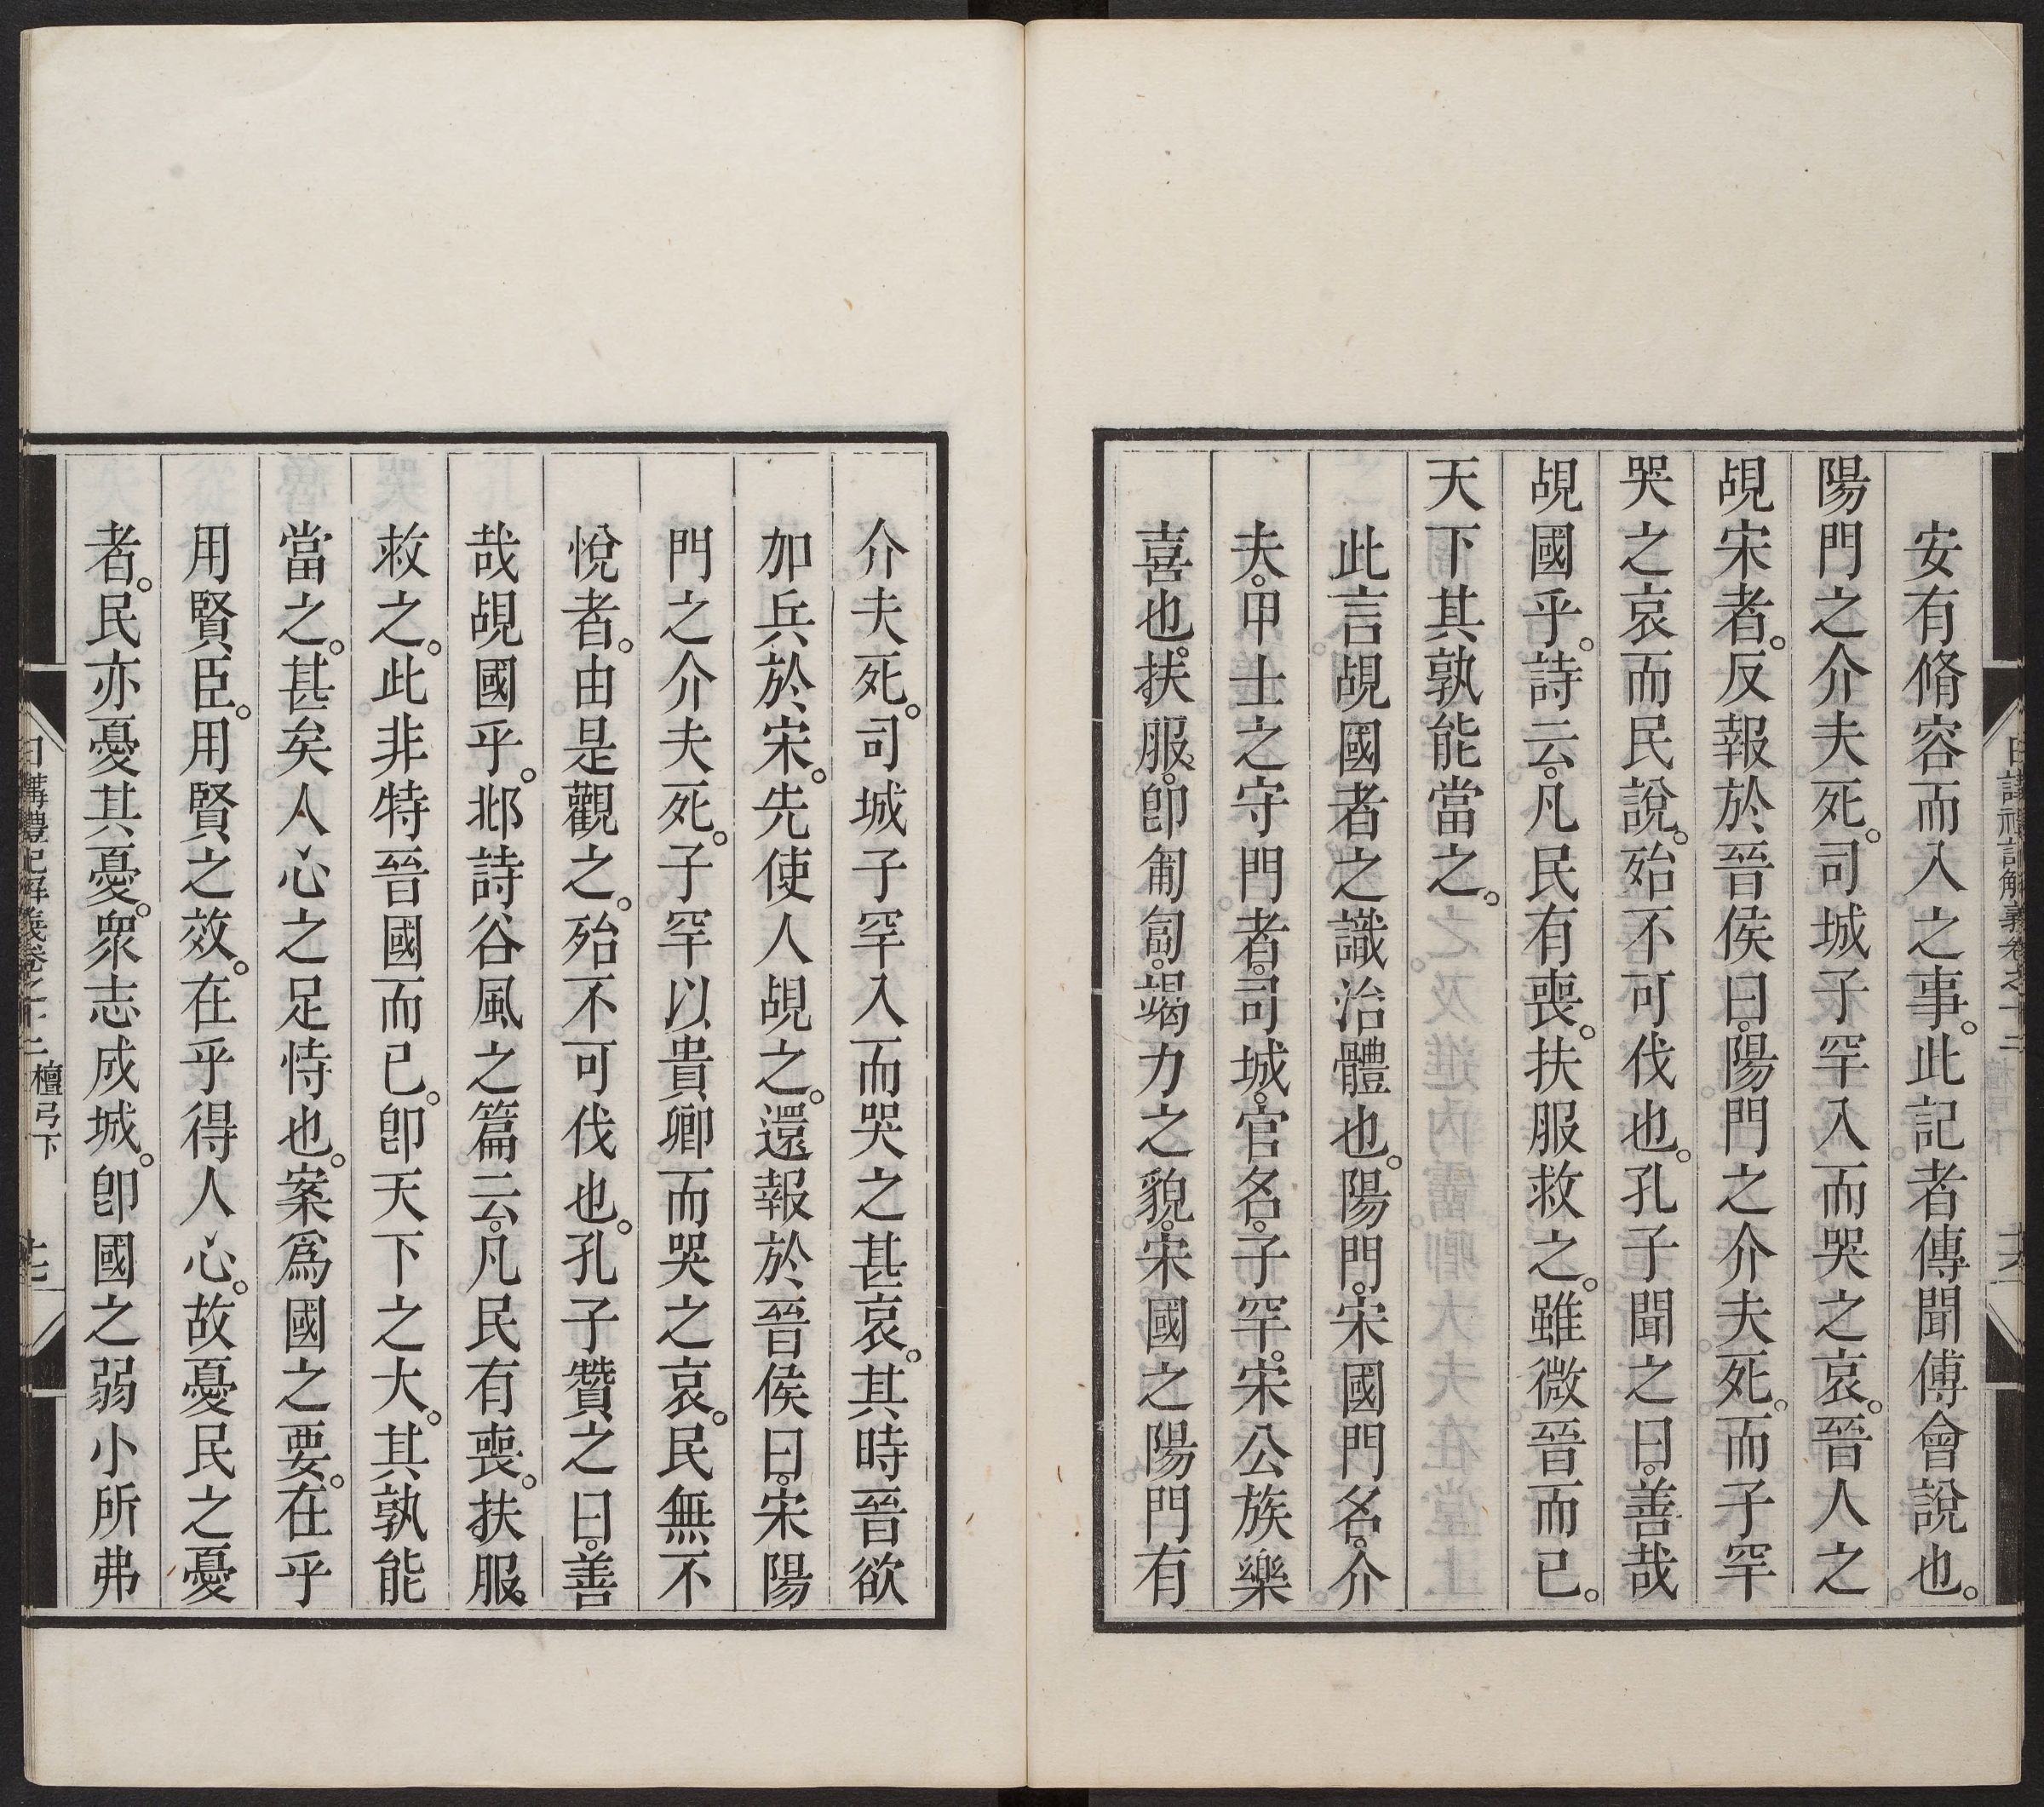 安有脩容而入之事。此記者傳聞傅會說也。
陽門之介夫死。司城子罕入而哭之哀。晉人之
覘宋者。反報於晉侯曰。陽門之介夫死。而子罕
哭之哀而民說。殆不可伐也。孔子聞之曰。善哉
覘國乎。詩云。凡民有喪。扶服救之。雖微晉而已。
天下其孰能當之。
此言覘國者之識治體也。陽門。宋國門名。介
夫。甲士之守門者。司城。官名。子罕。宋公族樂
喜也。扶服。卽匍匐。竭力之貌。宋國之陽門有
介夫死。司城子罕入而哭之甚哀。其時晉欲
加兵於宋。先使人覘之。還報於晉侯曰。宋陽
門之介夫死。子罕以貴卿而哭之哀。民無不
悅者。由是觀之。殆不可伐也。孔子贊之曰。善
哉覘國乎。邶詩谷風之篇云。凡民有喪。扶服。
救之。此非特晉國而已。卽天下之大。其孰能
當之。甚矣人心之足恃也。案爲國之要。在乎
用賢臣。用賢之效。在乎得人心。故憂民之憂
者。民亦憂其憂。衆志成城。卽國之弱小所弗
日講禮記解義卷之十二 檀弓下 十七